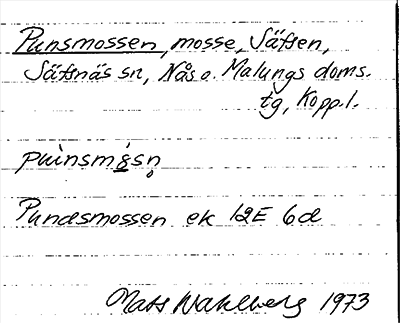 Punsmossen, mosse, Säfsen,
Säfsnäs sn, Nås o. Malungs doms.
tg, Kopp.l.
pu̇̀nsmọ̈́sn̥
Pundsmossen ek 12E 6d
Mats Wahlberg 1973